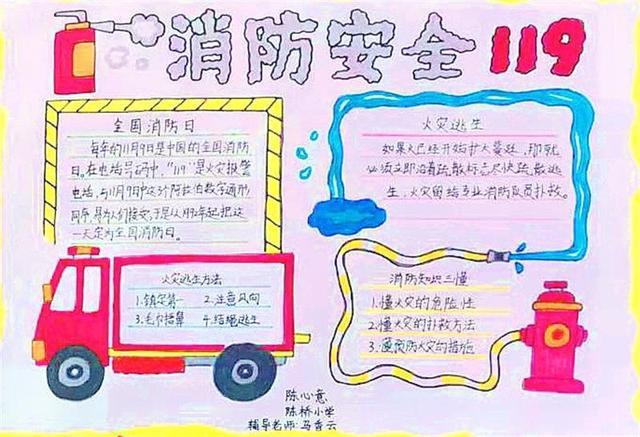 消防安全119
全国消防日
每年的11月9日是中国的全国消防
日。在电话号码中，"119"是火灾报警
电话，与11月9日中这3个阿拉伯数字通形
同序，易为人们接受，于是从1992年起把这
一天定为全国消防日。
火灾逃生
如果火已经开始扩大蔓延，那就
必须立即沿着疏散标志尽快疏散逃
生，火灾留给专业消防队员扑救。
火灾逃生方法
1.镇定第一 2.注意风向
3.毛巾捂鼻 4.结绳逃生
消防知识三懂
1.懂火灾的危险性
2.懂火灾的扑救方法
3.懂预防火灾的措施
陈心意
陈桥小学
辅导老师:马香云